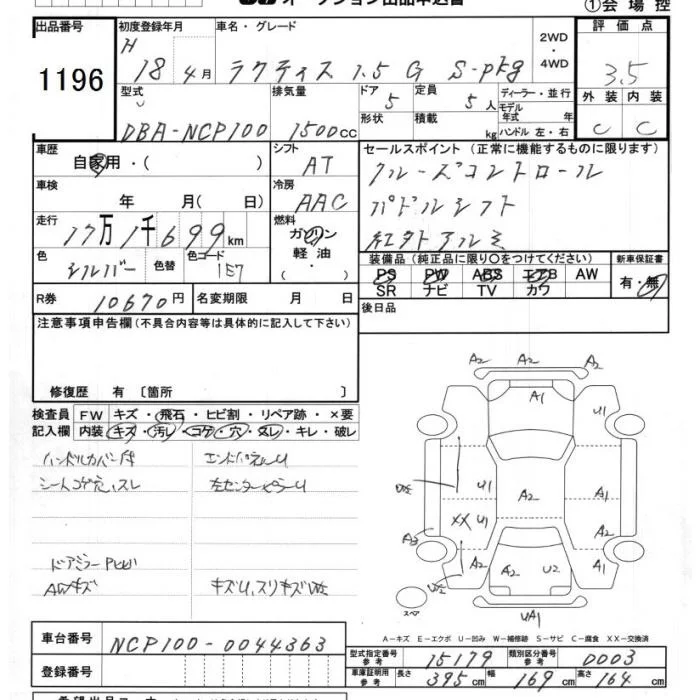 オークション出品申込書
①会場控
出品番号 初度登録年月 車名・グレード 2WD・4WD 評価点
1196 H 18 4月 ラクティス 1.5 G S-pkg 3.5
型式 排気量 ドア 5 定員 5人 ディーラー・並行 外装 内装
DBA-NCP100 1500cc 形状 積載 kg モデル年式 年 ハンドル 左・右 C C
車歴 自家用・( ) シフト AT セールスポイント (正常に機能するものに限ります)
車検 年 月(日) 冷房 AAC クルーズコントロール
パドルシフト
走行 17万1千699km 燃料 ガソリン 軽油・( ) 社外アルミ
色 シルバー 色替 色コード 1E7 装備品(純正品に限り〇をつけてください) 新車保証書
PS PW ABS エアB AW 有・無
SR ナビ TV カワ
R券 10670円 名変期限 月 日 後日品
注意事項申告欄(不具合内容等は具体的に記入して下さい)
修復歴 有 〔箇所 〕
検査員 FW キズ・飛石・ヒビ割・リペア跡・×要
記入欄 内装 キズ・汚レ・コゲ・穴・スレ・キレ・破レ
ハンドルカバー付 エンドパネルU
シートコゲ穴、スレ 左センターピラーU
AWキズ
A2 A2 A2
A1 U1
U1 A2 A1
XX U1 A2
A2 U2 A1
スペア
UA1
A-キズ E-エクボ U-凹み W-補修跡 S-サビ C-腐食 XX-交換済
車台番号 NCP100-0044363
型式指定番号 参考 15179 類別区分番号 参考 0003
登録番号
車庫証明用 参考 長さ 395cm 幅 169cm 高さ 164cm